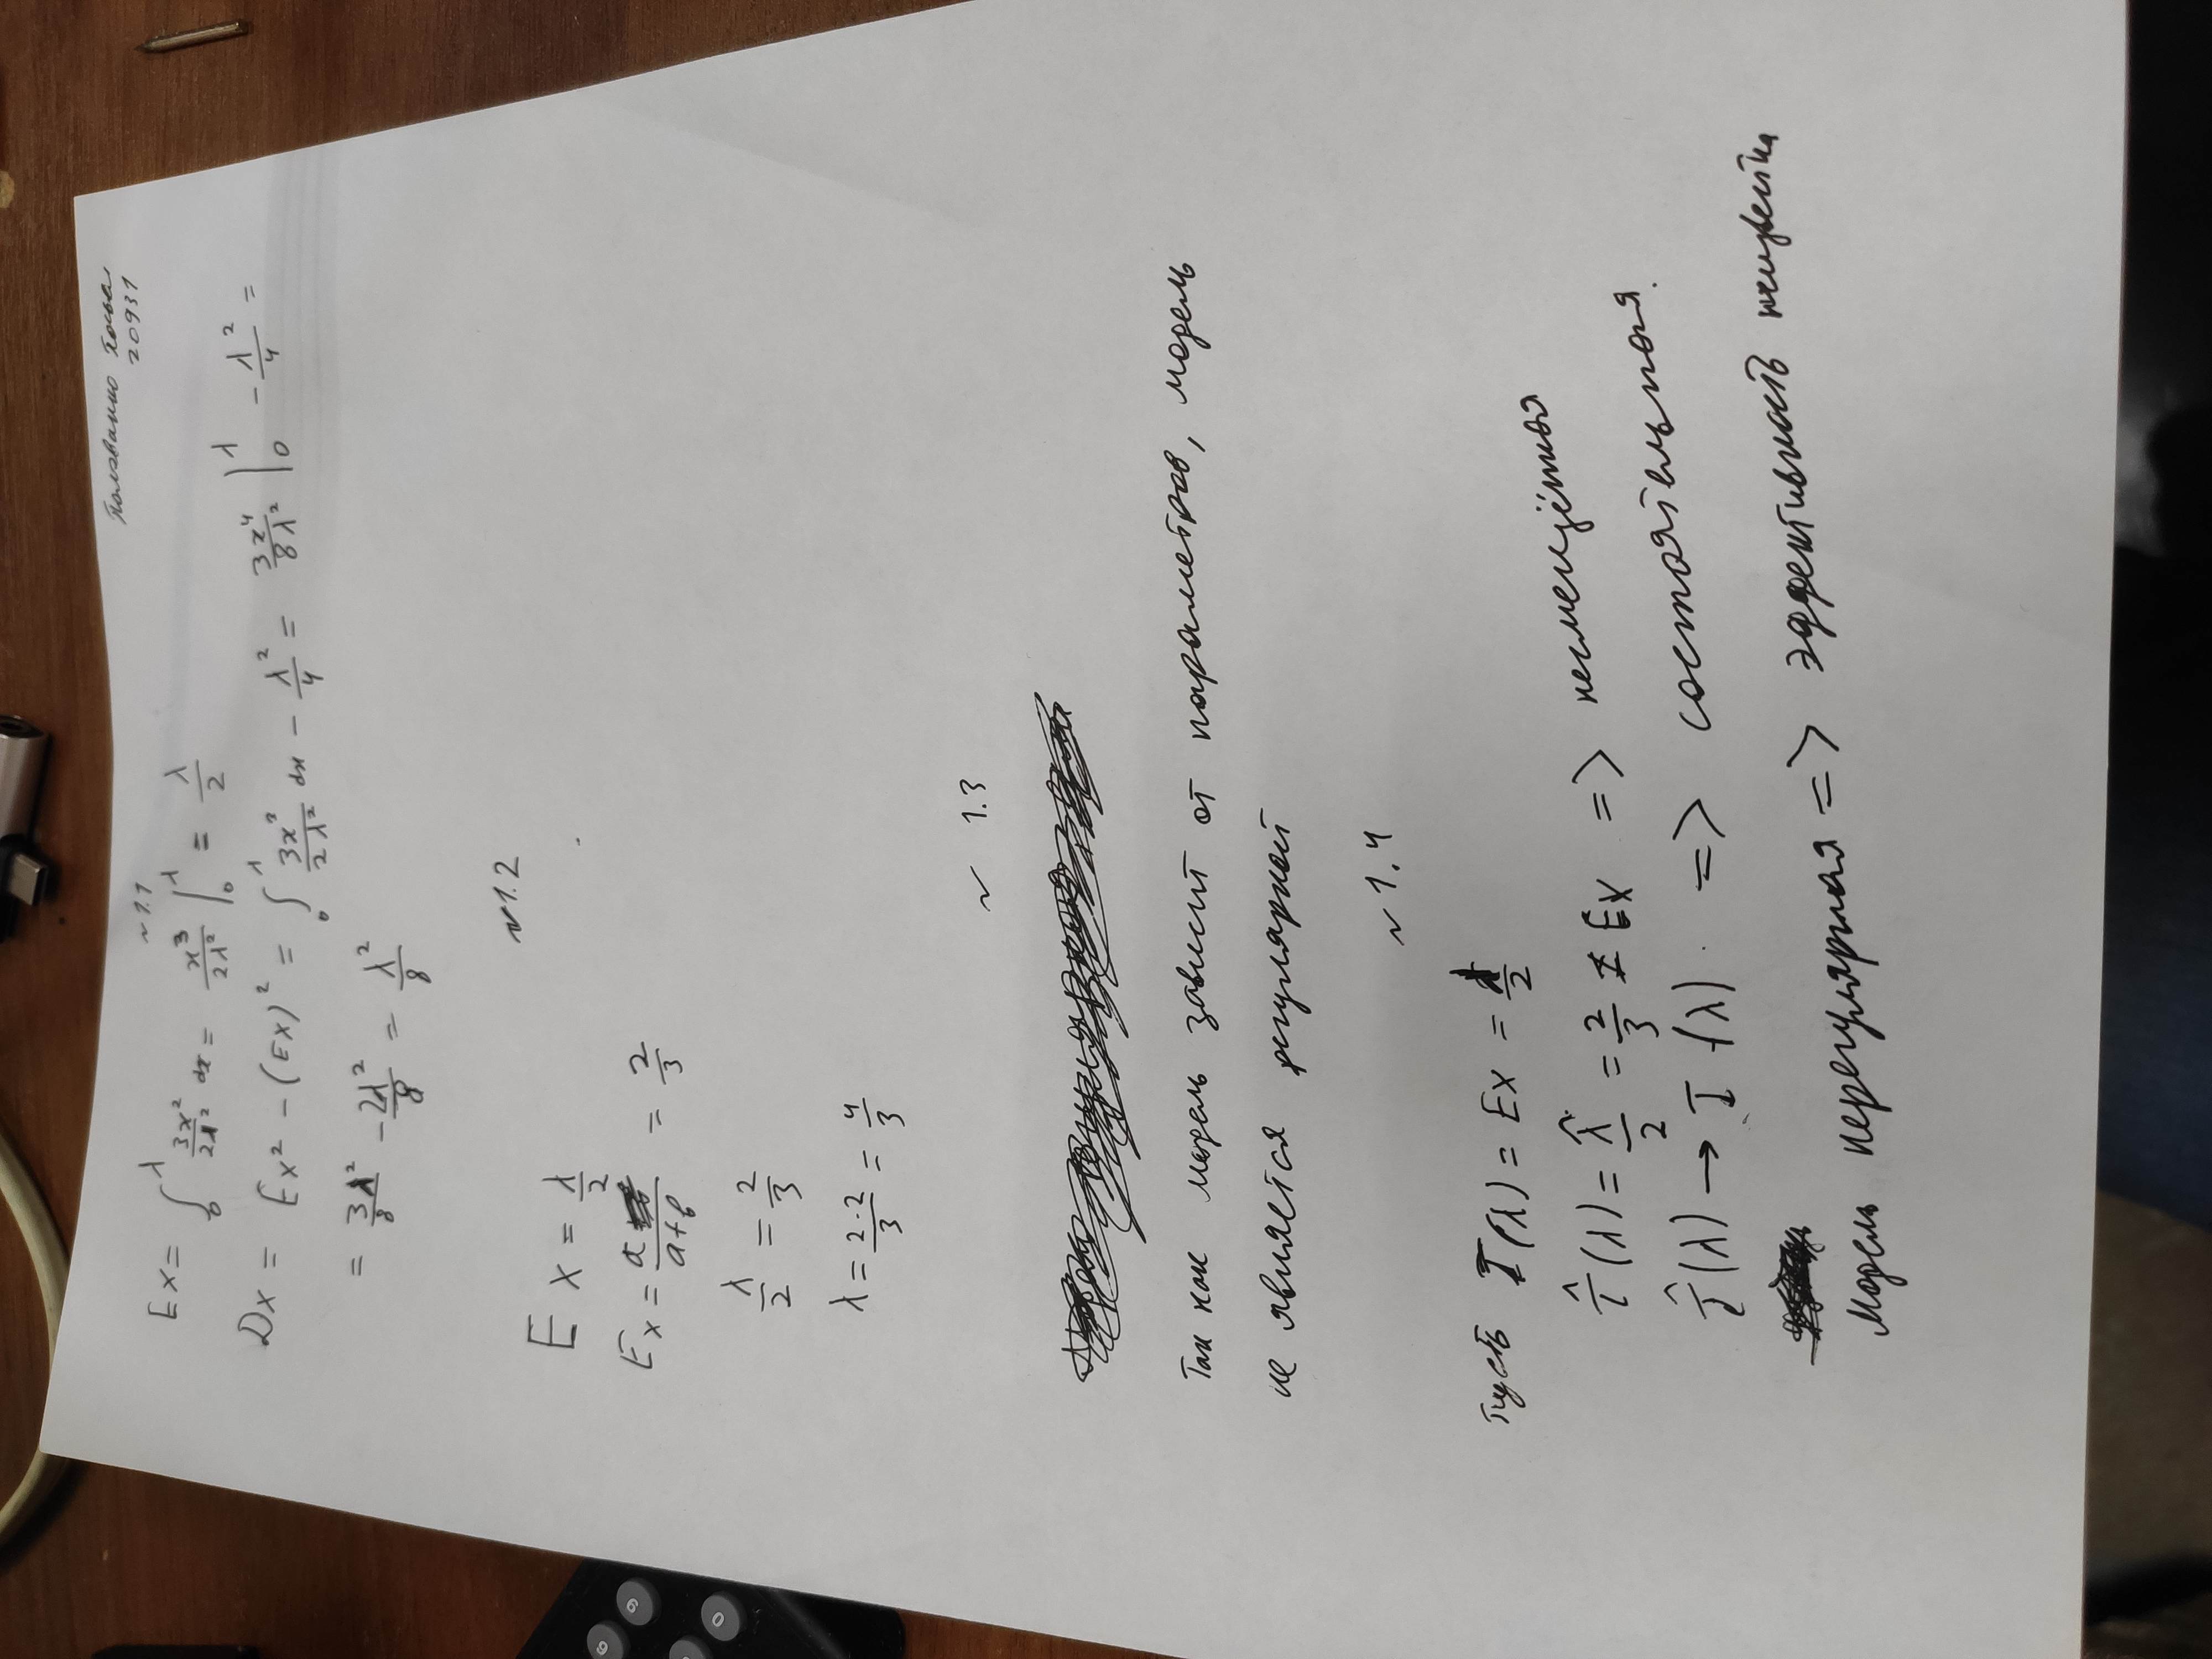 20931
~ 1.1
Ex = ∫₀^λ 3x²/2λ² dx = x³/2λ² |₀^λ = λ/2
Dx = Ex² - (Ex)² = ∫₀^λ 3x³/2λ² dx - λ²/4 = 3x⁴/8λ² |₀^λ - λ²/4 =
= 3λ²/8 - 2λ²/8 = λ²/8
~ 1.2
Ex = λ/2
Ex = a/a+b = 2/3
λ/2 = 2/3
λ = 2·2/3 = 4/3
~ 1.3
Так как модель зависит от параметров, модель
не является регулярной
~ 1.4
Пусть τ(λ) = Ex = λ/2
τ̂(λ) = λ̂/2 = 2/3 = Ex => несмещённая
τ̂(λ) → τ(λ) => состоятельная.
Модель нерегулярная => эффективность неизвестна